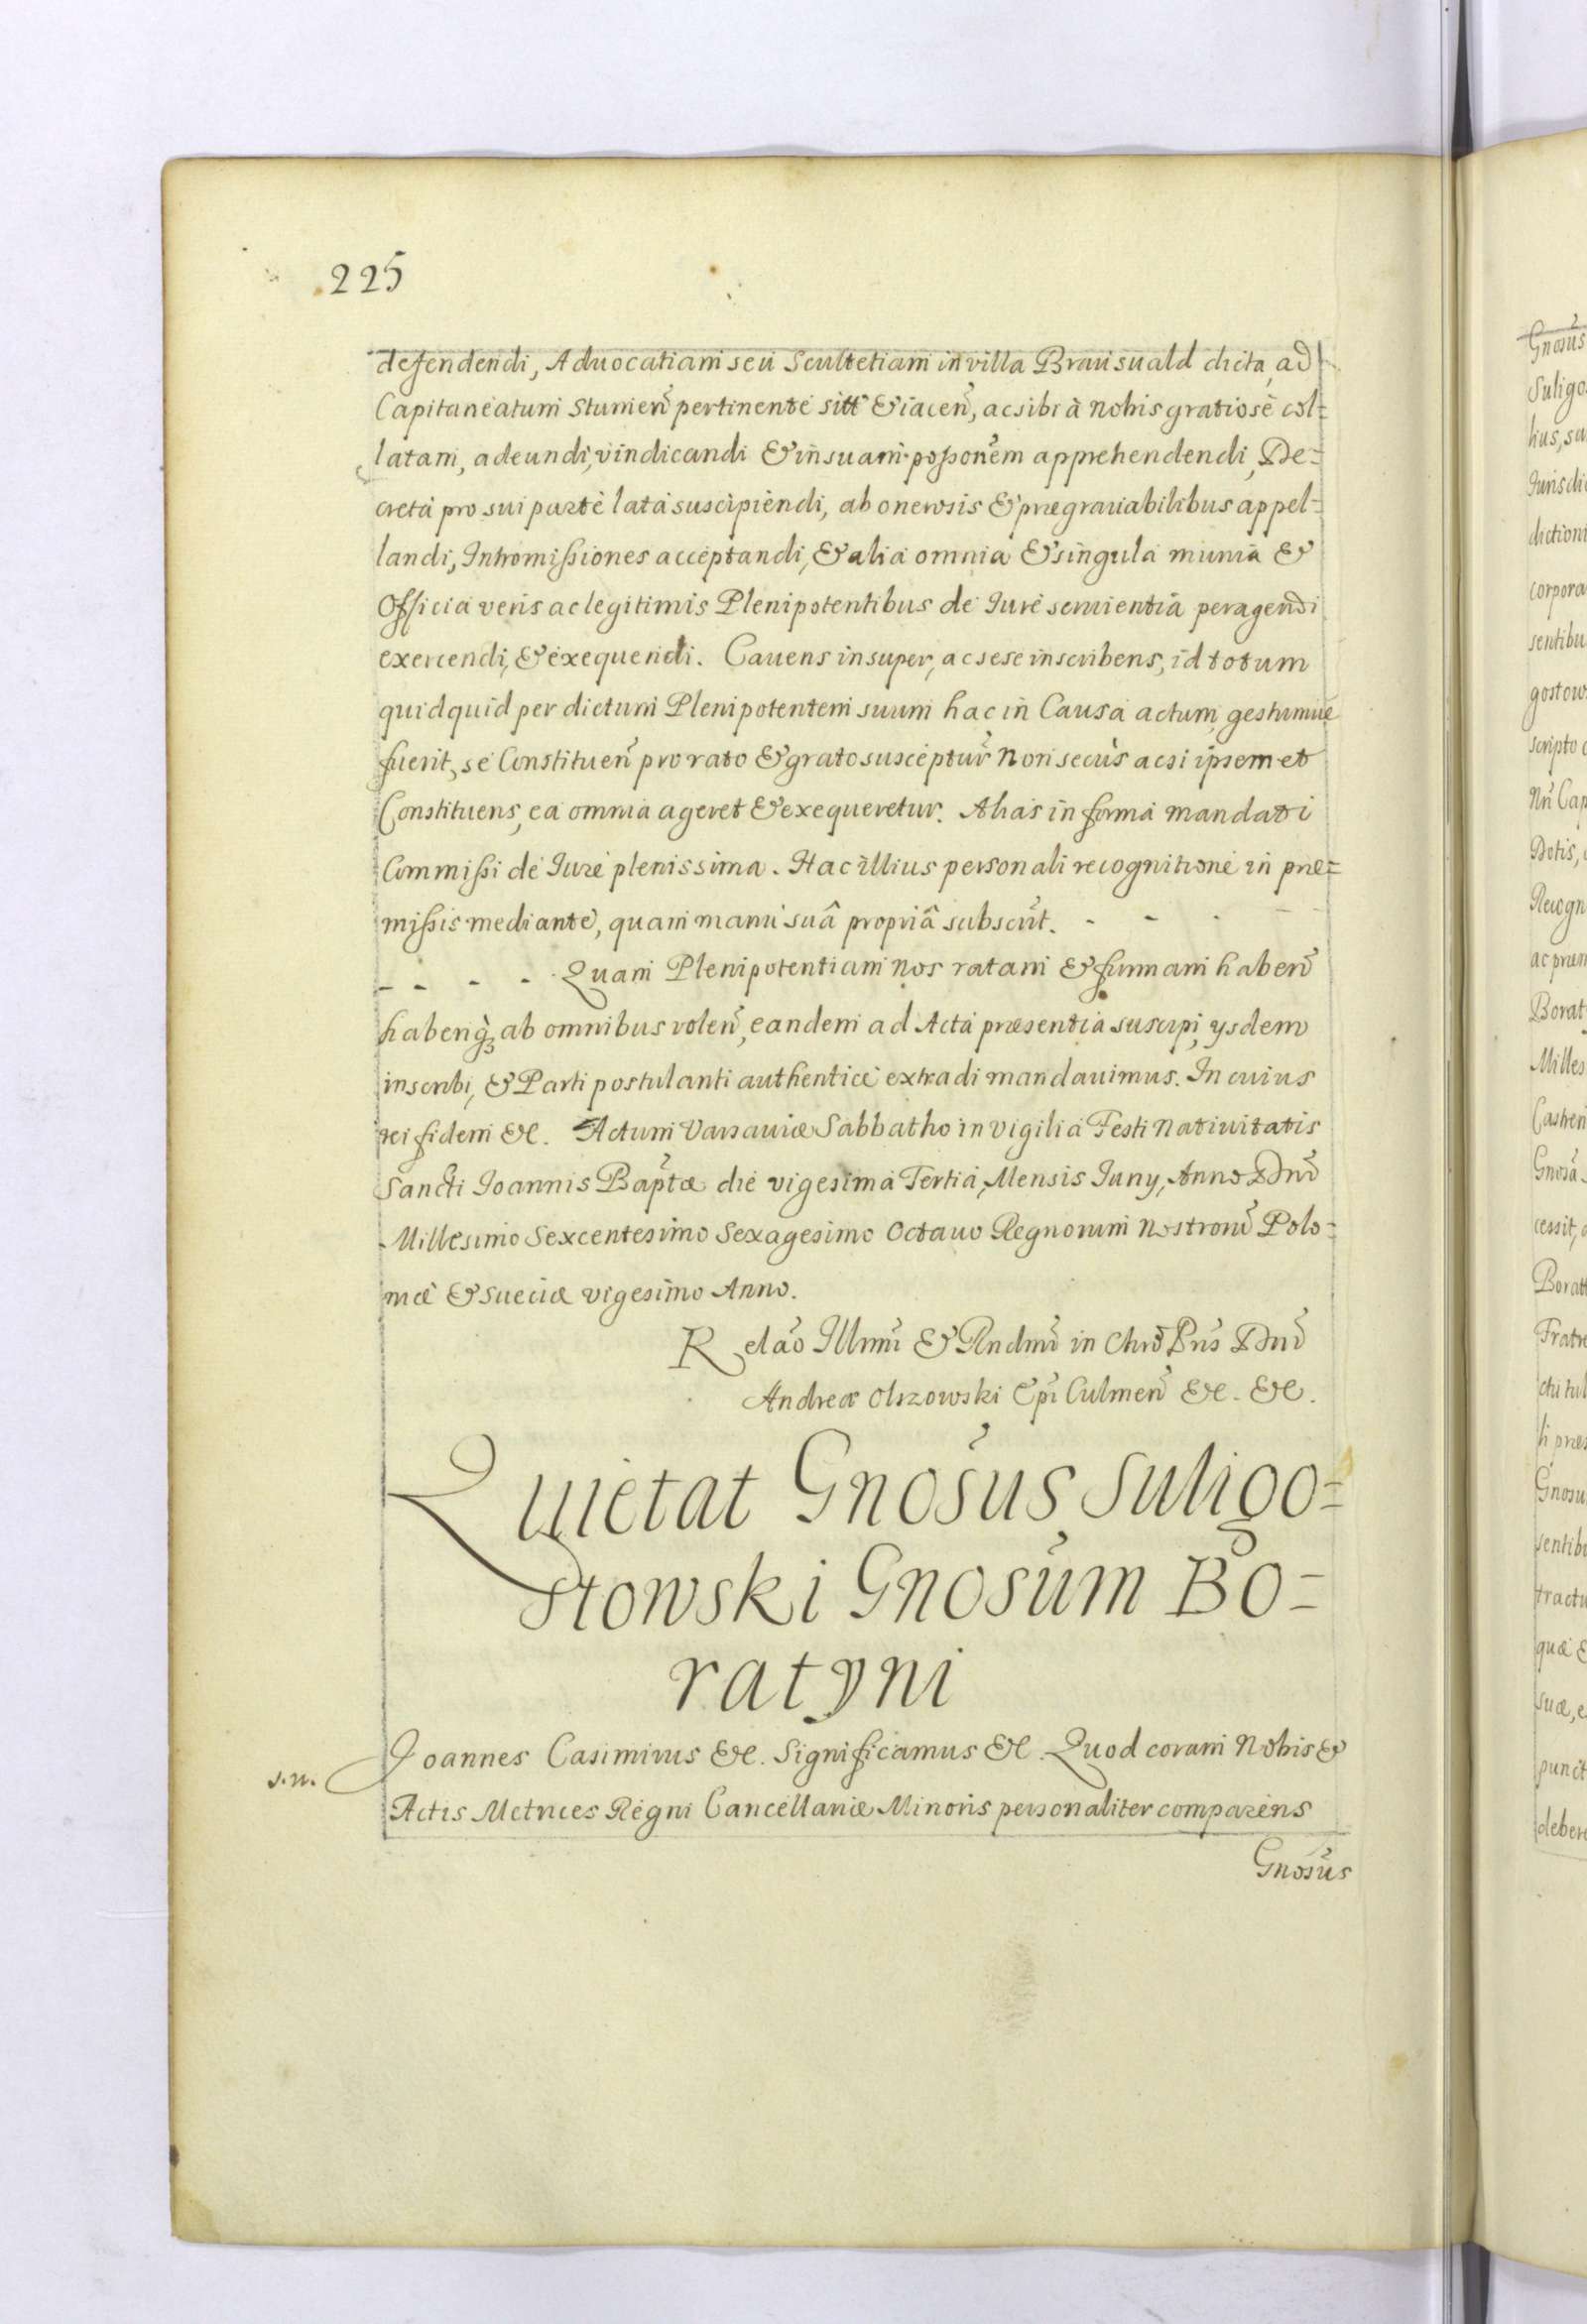 225
defendendi, Aduocatiam seu Scultetiam in villa Brausuald dicta, ad
Capitaneatum Stumen̄ pertinente sitt̄ & iacen̄, ac sibi à nobis gratiosè col=
latam, adeundi, vindicandi & in suam possonem̄ apprehendendi, De=
creta pro sui parte lata suscipiendi, ab onerosis & prægrauabilibus appel=
landi, Intromissiones acceptandi, & alia omnia & singula munia &
Officia veris ac legitimis Plenipotentibus de Iure seruientia peragendi
exercendi, & exequendi. Cauens insuper, ac sese inscribens, id totum
quidquid per dictum Plenipotentem suum hac in Causa actum, gestumue
fuerit, se Constituen̄ pro rato & grato susceptur̄ non secùs ac si ipsemet
Constituens, ea omnia ageret & exequeretur. Alias in forma mandati
Commissi de Iure plenissima. Hac illius personali recognitione in præ=
missis mediante, quam manu suâ propriâ subscrīt. - - - - -
- - - - Quam Plenipotentiam nos ratam & firmam haben̄
habenq̄ ab omnibus volen̄, eandem ad Acta præsentia suscipi, ysdem
inscribi, & Parti postulanti authenticè extradi mandauimus. In cuius
rei fidem &c. Actum Varsauiæ Sabbatho in vigilia Festi Natiuitatis
Sancti Ioannis Bapt̄æ die vigesima Tertia, Mensis Iuny, Anno Dnī
Millesimo Sexcentesimo Sexagesimo Octauo Regnorum Nostrorū Polo=
niæ & Sueciæ vigesimo Anno.
Relāo Illmī & Rndmī in Chrō Pr̄is Dnī
Andreæ Olszowski Epī Culmen̄ &c. &c.
Quietat Gnōsus Suligo=
stowski Gnōsum Bo=
ratyni
s. n.
Joannes Casimirus &c. Significamus &c. Quod coram Nobis &
Actis Metrices Regni Cancellariæ Minoris personaliter comparens
Gnōsus